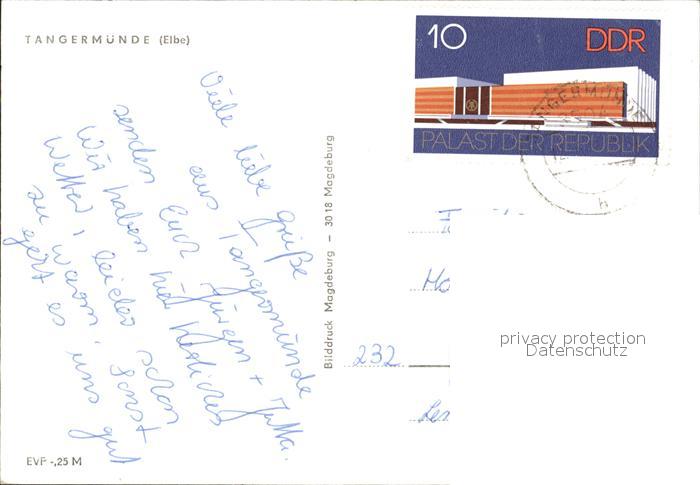 TANGERMÜNDE (Elbe)
10 DDR
PALAST DER REPUBLIK
Viele liebe Grüße
aus Tangermünde
senden Euch Jürgen + Jutta.
Wir haben hier herrliches
Wetter, leider schon
zu warm. Sonst
geht es uns gut
Bilddruck Magdeburg – 3018 Magdeburg
privacy protection
Datenschutz
232
EVP -,25 M